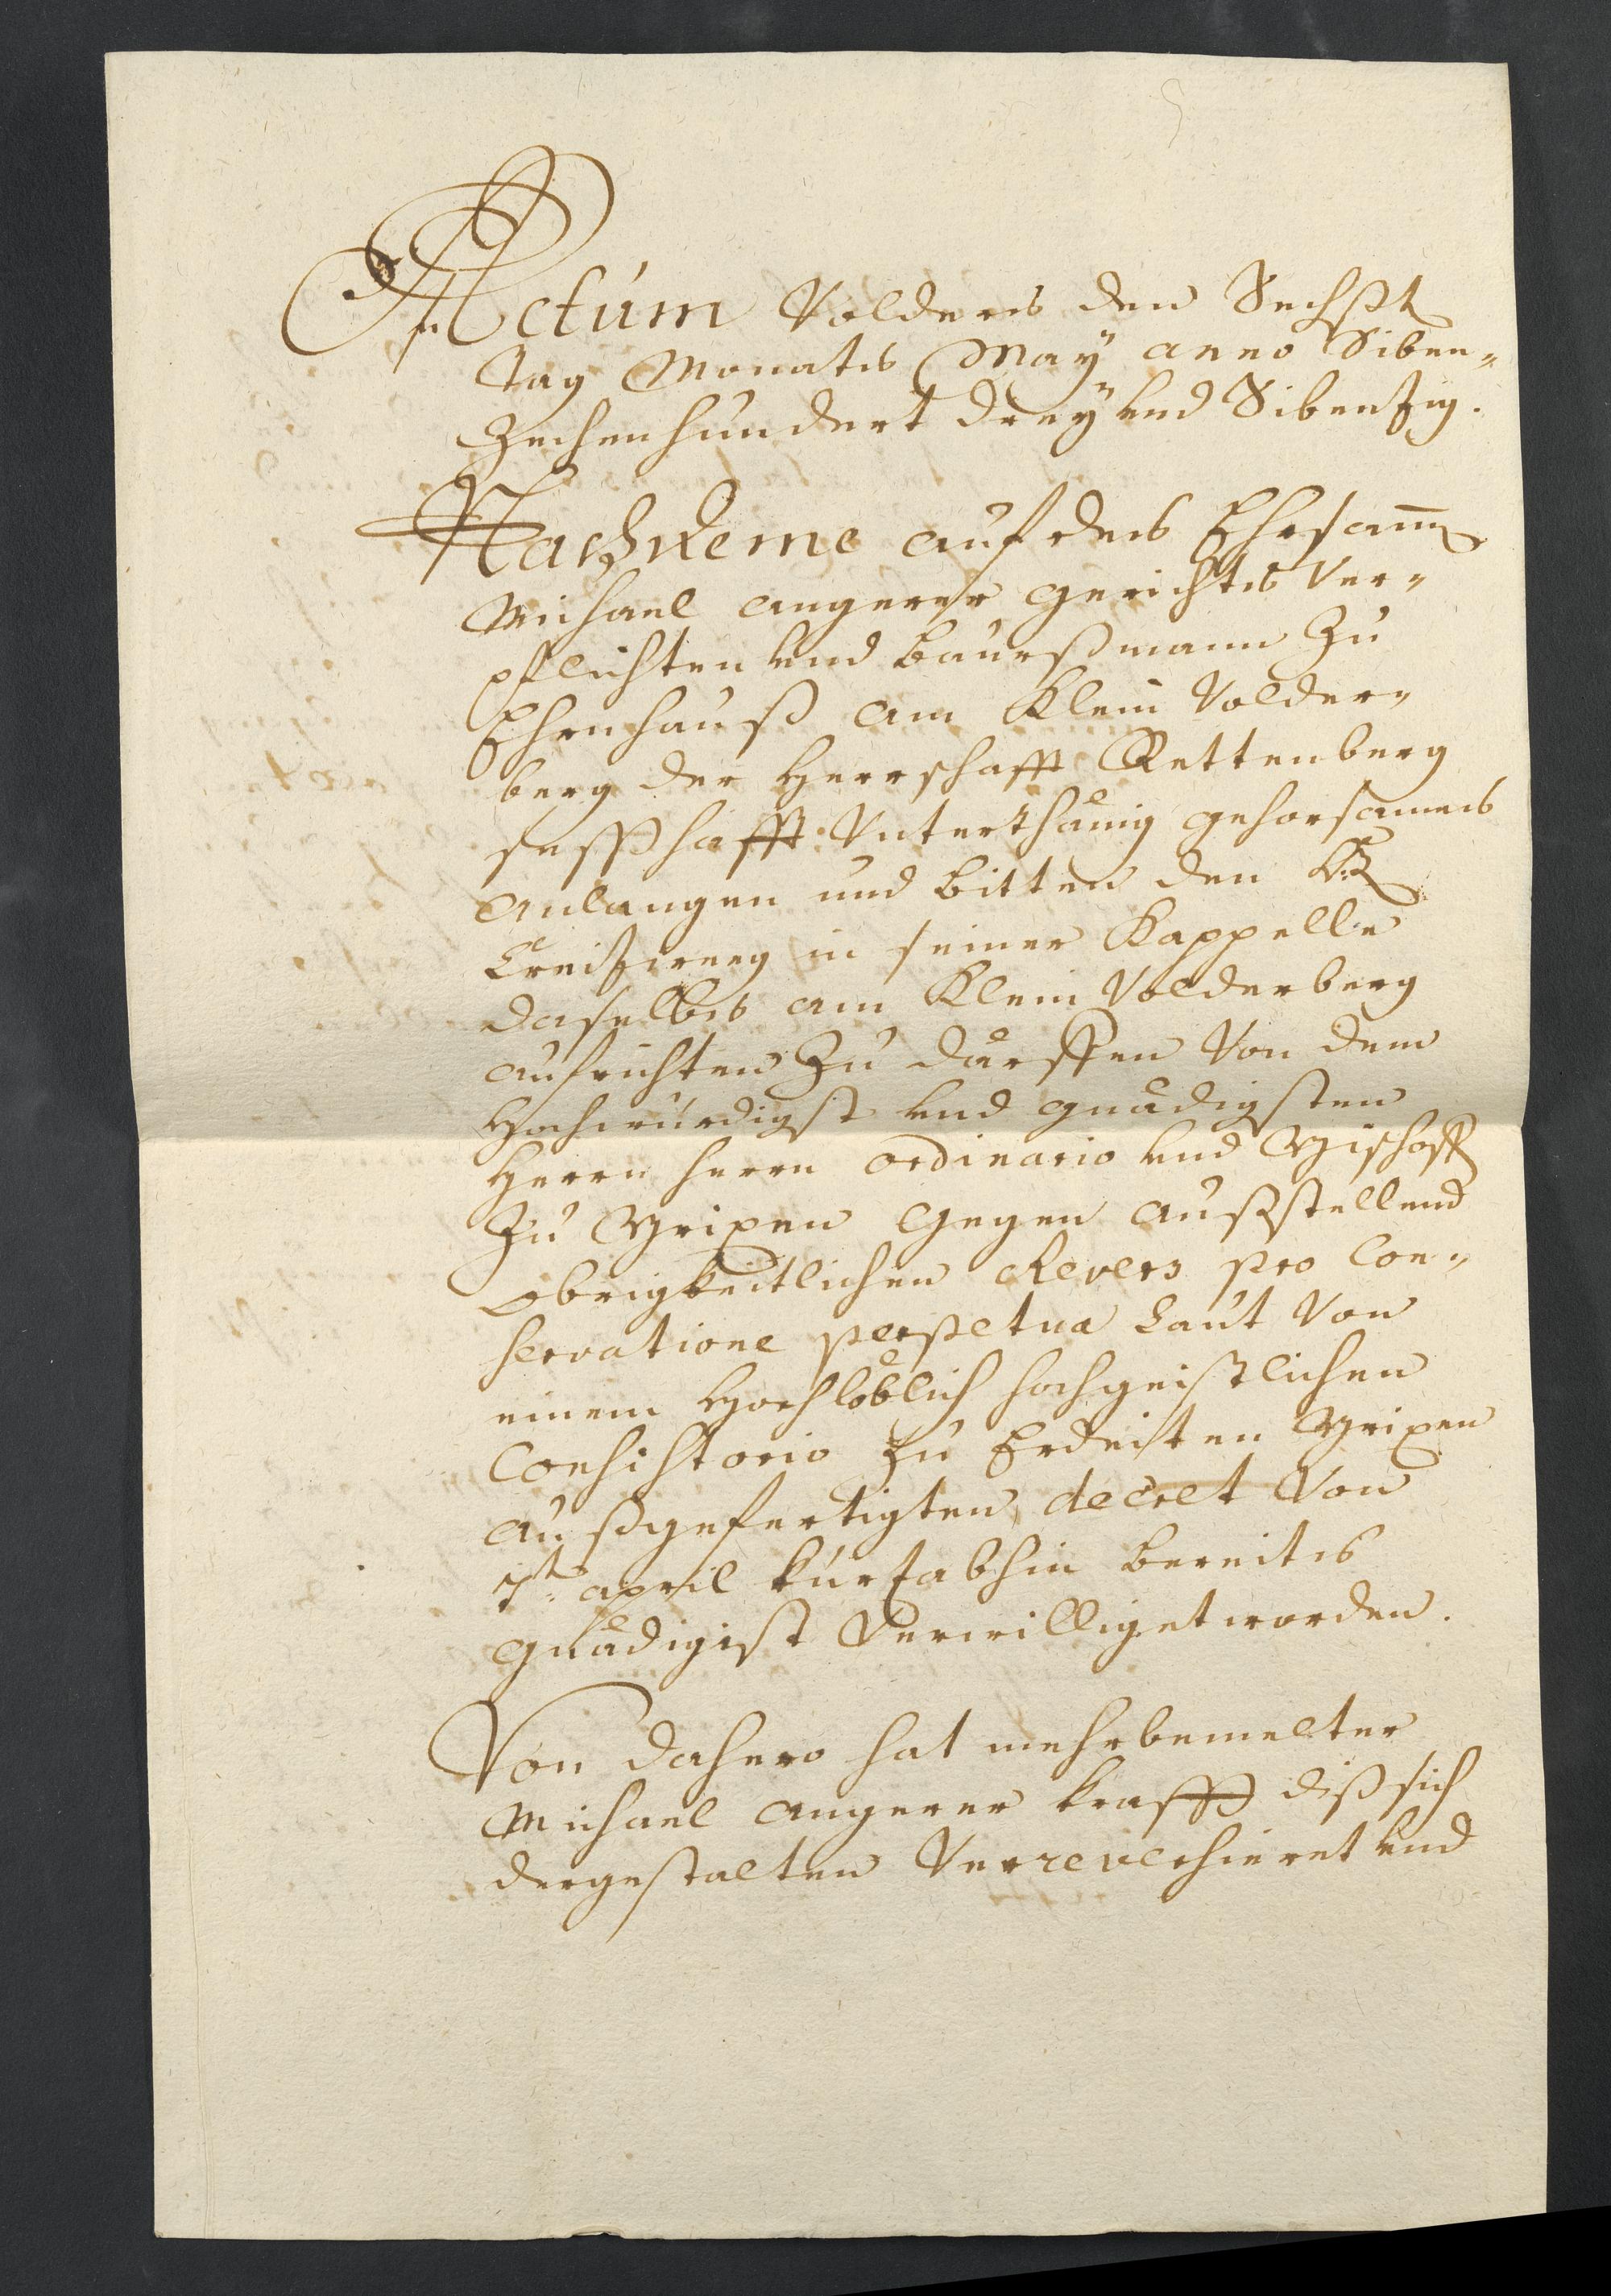 Actum Volders den Sechst
Tag Monats May anno Siben-
Zechenhundert drey und Sibentzig.
Nachdeme auf des Ehrsamm
Michael Angerer gerichts Ver-
pflichten und baurßmann Zu
Ehrnhauß am Klein Volder-
berg der Herrschafft Rettenberg
sesshafft Vnterthänig gehorsames
anlangen und bitten den
Creitzweeg in seiner Kappelle
daselbs am Klein Volderberg
aufrichten Zu därffen Von dem
Hochwürdigst und gnädigsten
Herrn Herrn ordinario und Bischoff
Zu Brixen gegen außstellend
obrigkeitlichen Revers pro Con-
servatione perpetua Laut Von
einem Hochlöblich hochgeistlichen
Consistorio zu Erdeisten Brixen
außgefertigten decret Von
7t: april kurtzabhin bereits
gnädigist Verwilliget worden.
Von dahero hat mehrbemelter
Michael Angerer krafft diß sich
dergestalten Verreversieret und